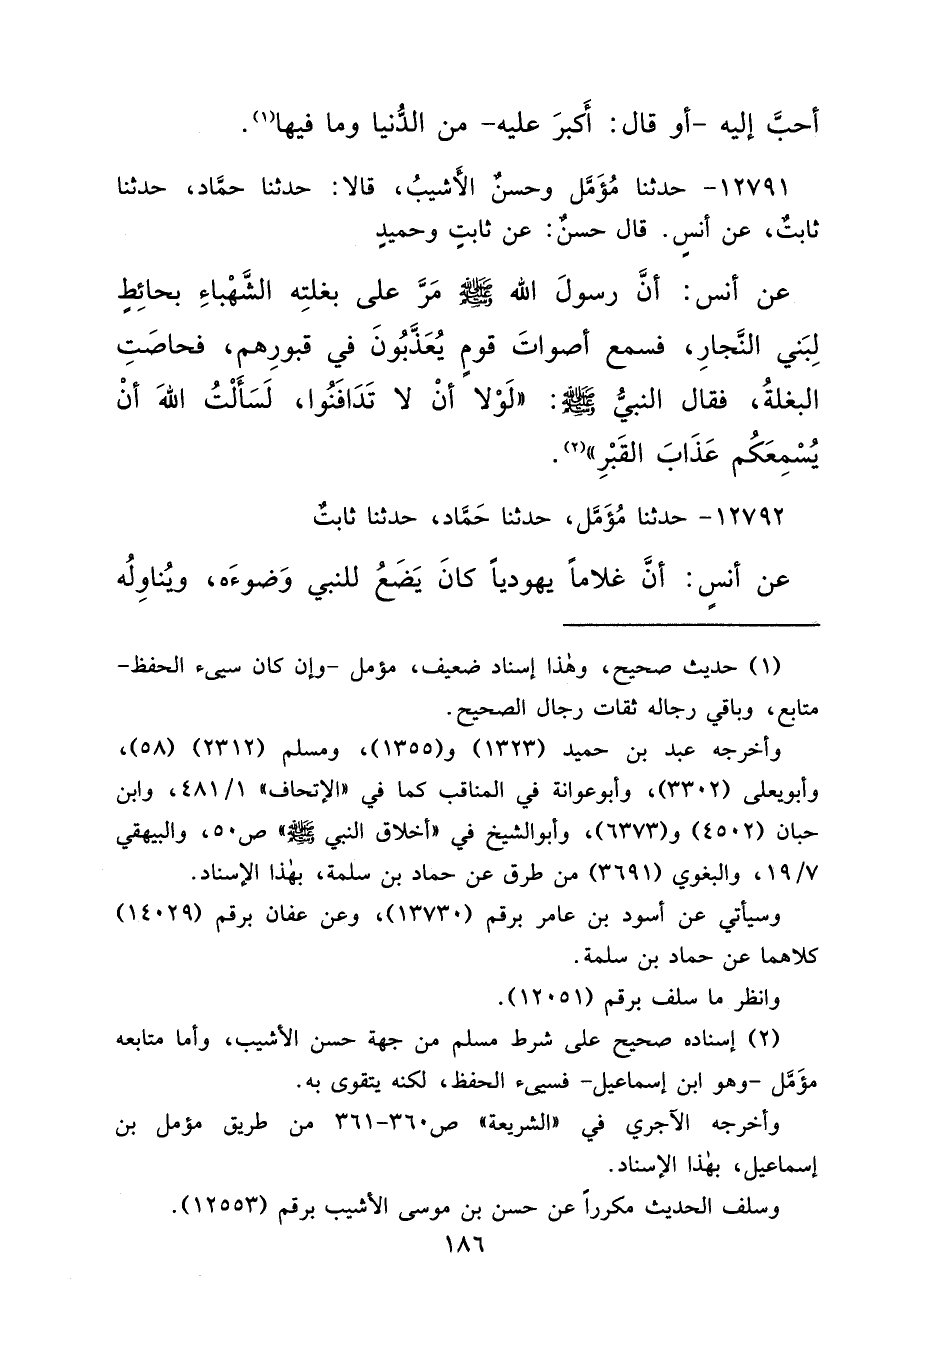 أحبَّ إليه -أو قال: أَكبرَ عليه- من الدُّنيا وما فيها(١).
١٢٧٩١- حدثنا مُؤَمَّل وحسنٌ الأَشيبُ، قالا: حدثنا حمَّاد، حدثنا
ثابتٌ، عن أنسٍ. قال حسنٌ: عن ثابتٍ وحميدٍ
عن أنس: أنَّ رسولَ الله ﷺ مَرَّ على بغلتِه الشَّهْباءِ بحائطٍ
لِبَني النَّجارِ، فسمع أصواتَ قومٍ يُعَذَّبُونَ في قبورِهم، فحاصَتِ
البغلةُ، فقال النبيُّ ﷺ: «لَوْلا أنْ لا تَدَافَنُوا، لَسَأَلْتُ اللهَ أنْ
يُسْمِعَكُم عَذَابَ القَبْرِ»(٢).
١٢٧٩٢- حدثنا مُؤَمَّل، حدثنا حَمَّاد، حدثنا ثابتٌ
عن أنسٍ: أنَّ غلاماً يهودياً كانَ يَضَعُ للنبي وَضوءَه، ويُناوِلُه
(١) حديث صحيح، وهٰذا إسناد ضعيف، مؤمل -وإن كان سيىء الحفظ-
متابع، وباقي رجاله ثقات رجال الصحيح.
وأخرجه عبد بن حميد (١٣٢٣) و(١٣٥٥)، ومسلم (٢٣١٢) (٥٨)،
وأبويعلى (٣٣٠٢)، وأبوعوانة في المناقب كما في «الإتحاف» ٤٨١/١، وابن
حبان (٤٥٠٢) و(٦٣٧٣)، وأبوالشيخ في «أخلاق النبي ﷺ» ص٥٠، والبيهقي
١٩/٧، والبغوي (٣٦٩١) من طرق عن حماد بن سلمة، بهٰذا الإسناد.
وسيأتي عن أسود بن عامر برقم (١٣٧٣٠)، وعن عفان برقم (١٤٠٢٩)
كلاهما عن حماد بن سلمة.
وانظر ما سلف برقم (١٢٠٥١).
(٢) إسناده صحيح على شرط مسلم من جهة حسن الأشيب، وأما متابعه
مؤَمَّل -وهو ابن إسماعيل- فسيىء الحفظ، لكنه يتقوى به.
وأخرجه الآجري في «الشريعة» ص٣٦٠-٣٦١ من طريق مؤمل بن
إسماعيل، بهٰذا الإسناد.
وسلف الحديث مكرراً عن حسن بن موسى الأشيب برقم (١٢٥٥٣).
١٨٦